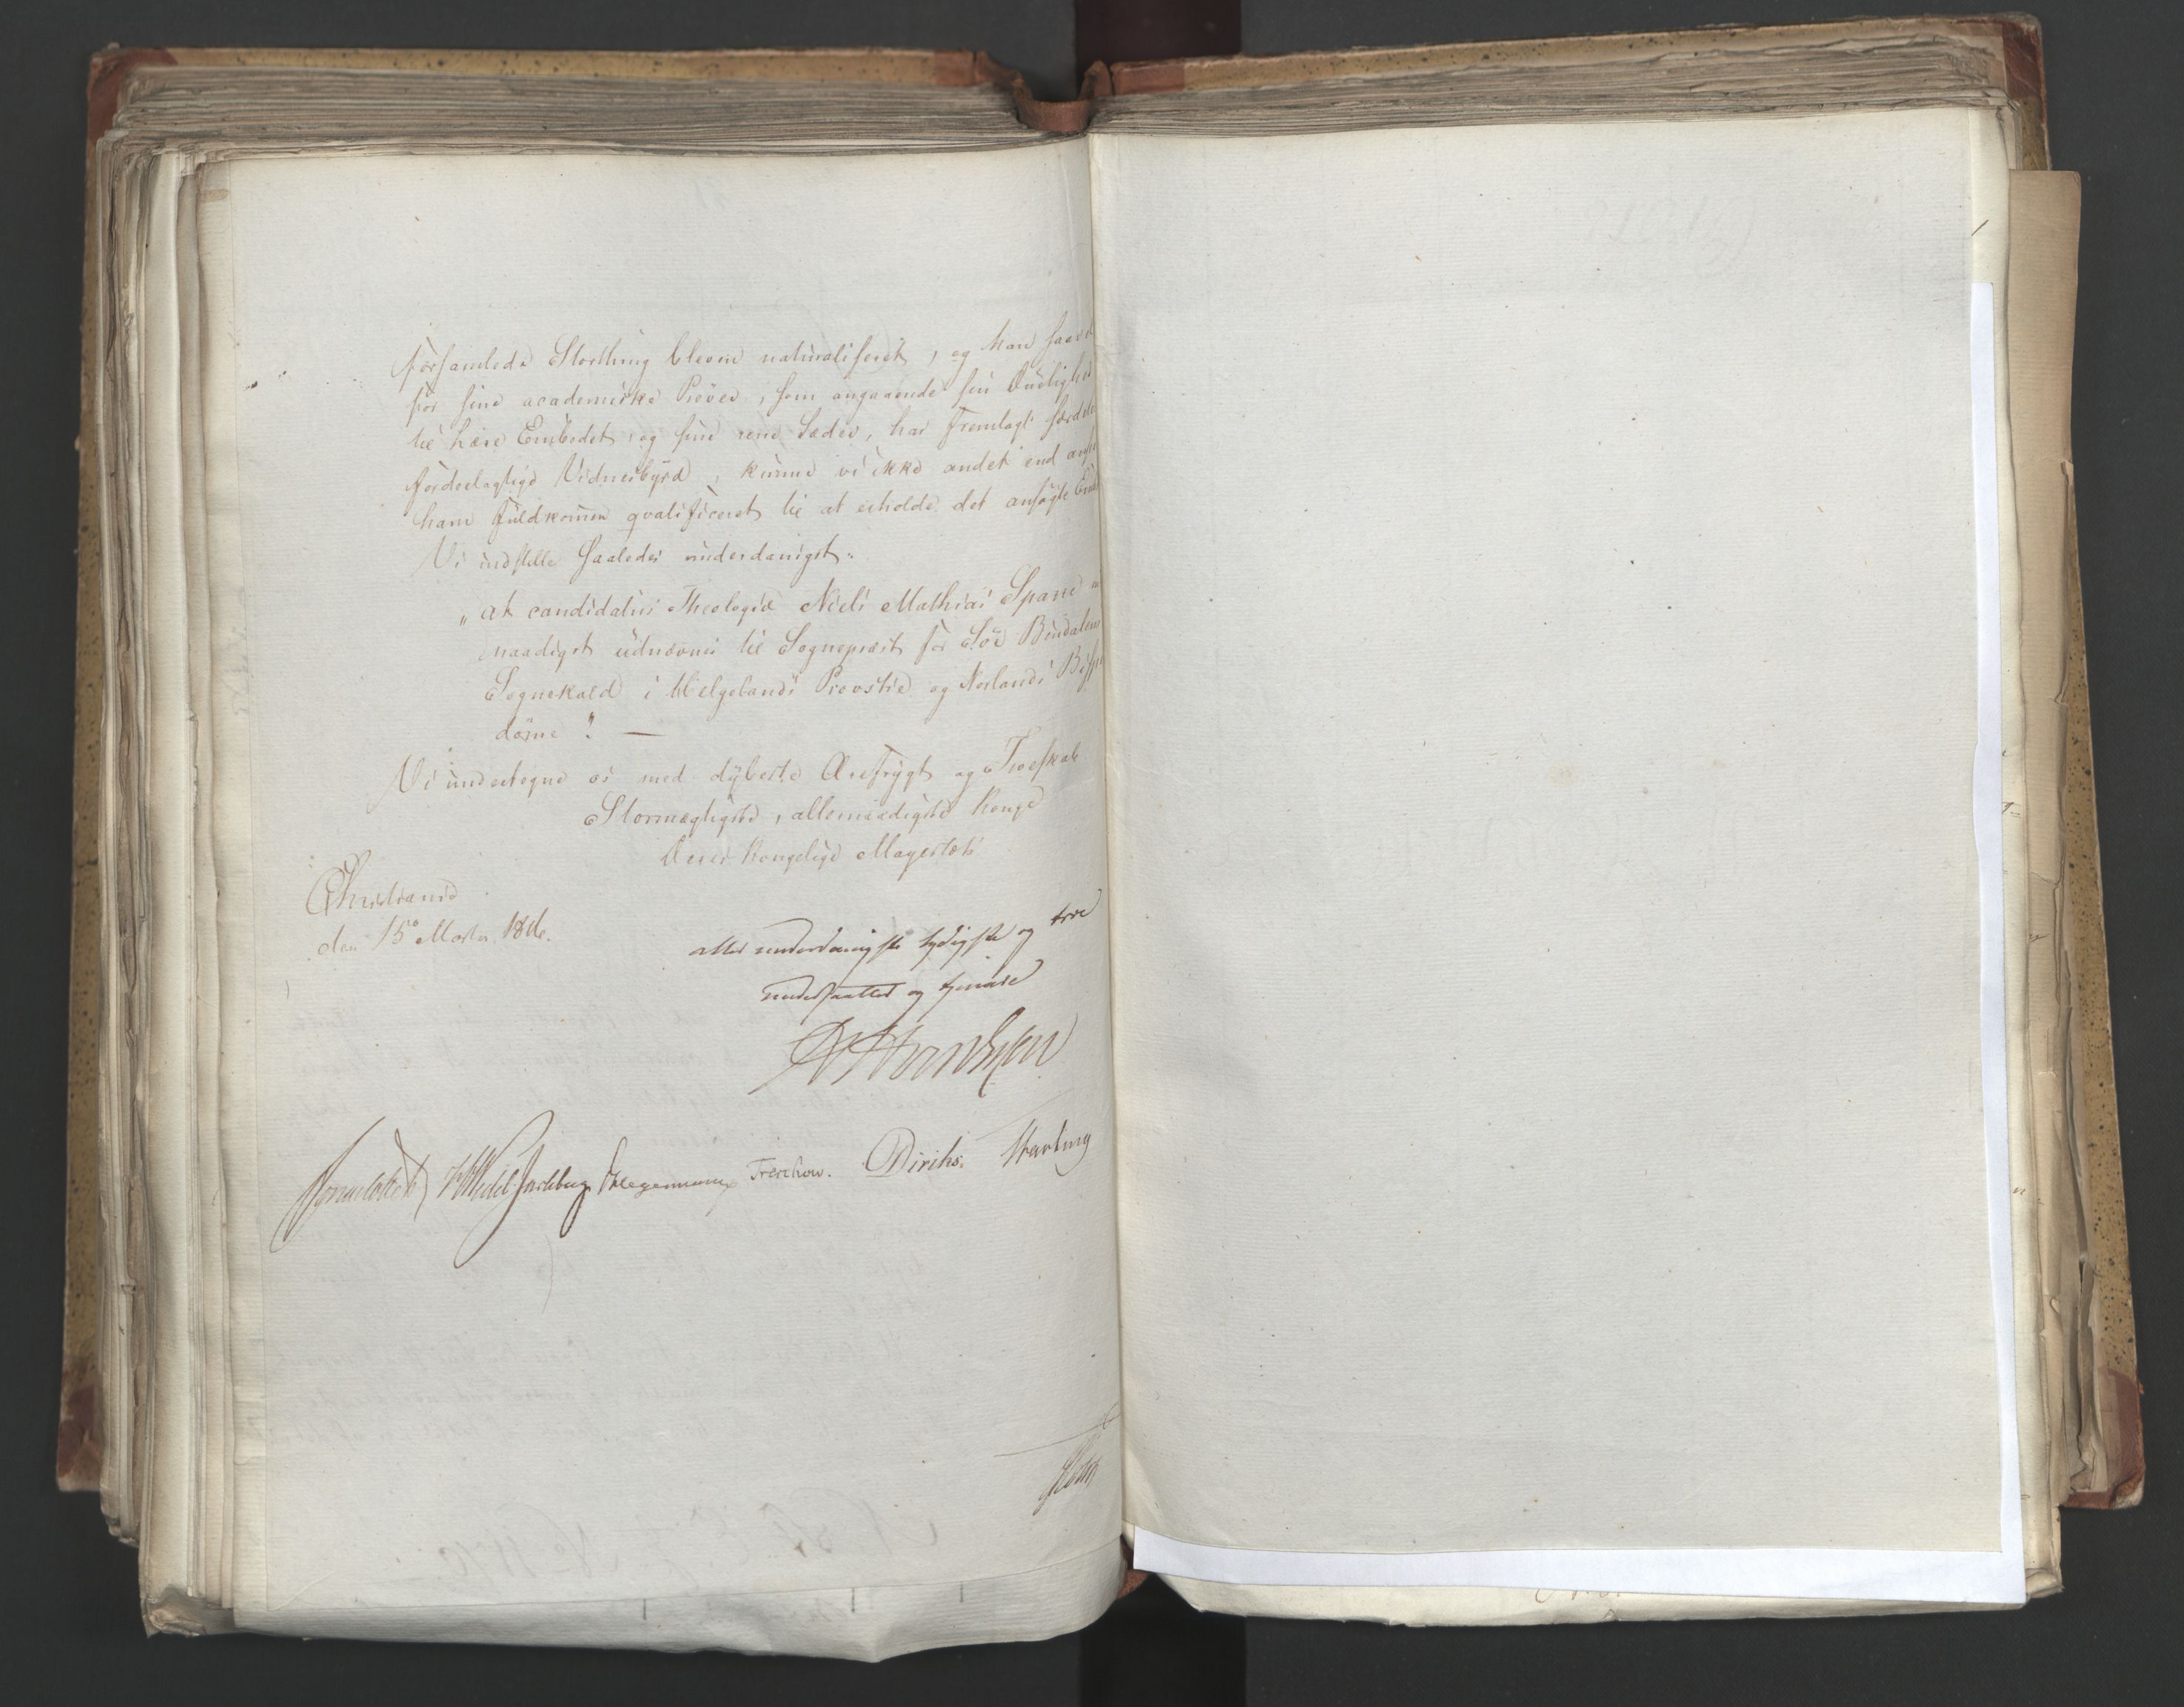 forsamlede Storthing bleven naturaliseret, og han saavel
for sine academiske Prøver, som angaaende sin Duelighed
til Lære Embedet, og sine rene Sæder, har fremlagt særdeles
fordeelagtige Vidnesbyrd, kunne vi ikke andet end ansee
ham fuldkommen qvalificeret til at erholde det ansøgte Em
Vi indstille saaledes underdanigst:
"at candidatus Theologiæ Niels Mathias Spane
naadigst udnævnes til Sognepræst for Sør Bindalens
Sognekald i Helgelands Provstie og Norlands Bispe
dømme". —
Vi undertegne os med dybeste Ærefrygt og Troeskab
Stormægtigste, allernaadigste Konge
Deres Kongelige Mayestæts
Christiania
den 15e Marts 1816.
allerunderdanigste lydigste og troe
undersaatter og tjenere
Sommerhielm HWedel Jarlsberg Hegermann Treschow. Diriks. Krebs